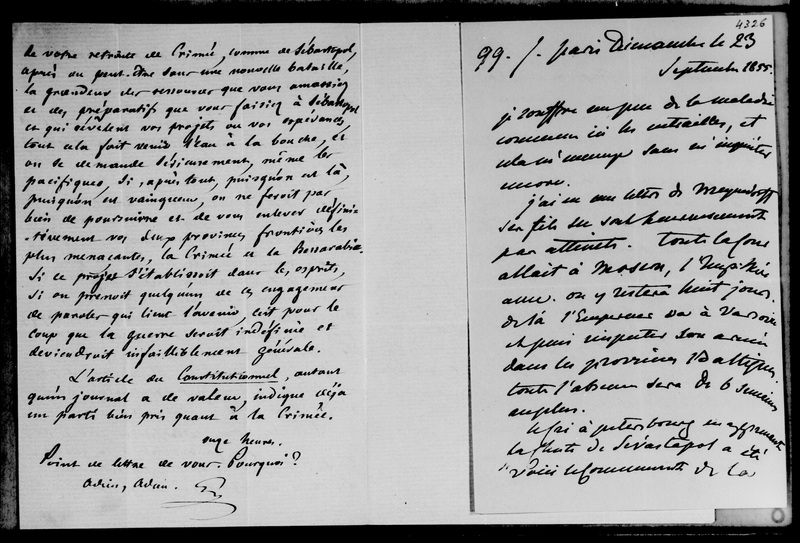 de votre retraite de Crimée, comme de Sébastopol,
après ou peut-être sans une nouvelle bataille,
la grandeur des ressources que vous amassiez
et des préparatifs que vous faisiez à Sébastopol
et qui révèlent vos projets ou vos espérances,
tout cela fait venir l'eau à la bouche, et
on se demande sérieusement, même les
pacifiques, si, après tout, puisqu'on est là,
puisqu'on est vainqueur, on ne feroit pas
bien de poursuivre et de vous enlever défini-
-tivement vos deux provinces frontières les
plus menaçantes, la Crimée et la Bessarabie.
Si ce projet s'établissoit dans les esprits,
si on prenoit quelqu'un de ces engagemens
de paroles qui lient l'avenir, c'est pour le
coup que la guerre seroit indéfinie et
deviendroit infailliblement générale.
L'article du Constitutionnel, autant
qu'un journal a de valeur, indique déjà
un parti bien pris quant à la Crimée.
onze heures.
Point de lettre de vous. Pourquoi?
Adieu, Adieu. G
4326
99. /. paris Dimanche le 23
Septembre 1855.
je souffre un peu de la maladie
commune ici les entrailles, et
cela m'ennuye sans m'inquiéter
encore.
j'ai eu une lettre de
ses fils ne sont heureusement
pas atteints. toute la Cour
allait à Moscou, l'Impératrice
aussi. on y restera huit jours.
de là l'Empereur va à Varsovie
et puis inspecter son armée
dans les provinces Baltiques.
toute l'absence sera de 6 semaines
au plus.
à petersbourg en apprenant
la chute de Sévastopol a été
voici le commencement de la